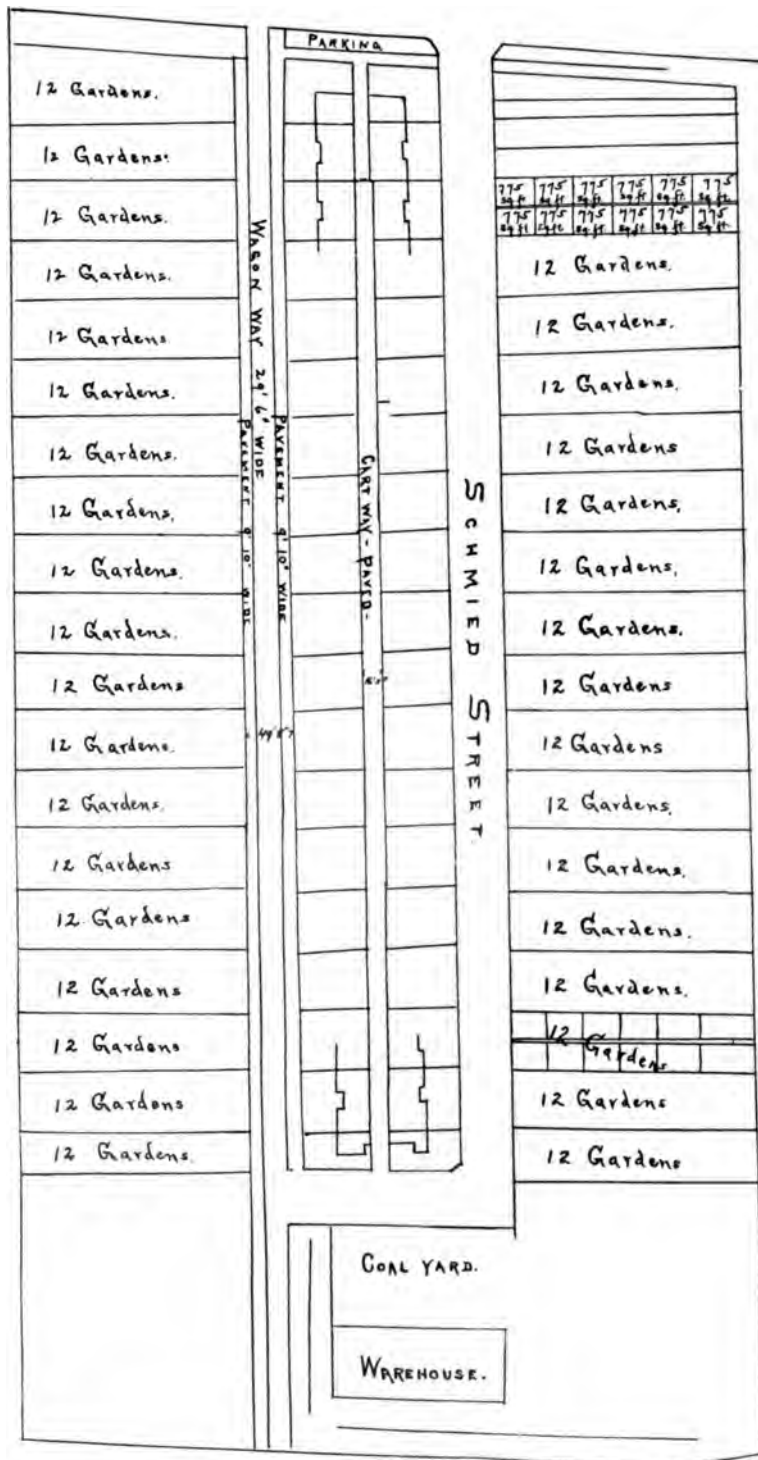 PARKING
12 Gardens.
12 Gardens.
12 Gardens.
12 Gardens.
12 Gardens
12 Gardens.
12 Gardens.
12 Gardens.
12 Gardens.
12 Gardens.
12 Gardens
12 Gardens.
12 Gardens.
12 Gardens
12 Gardens
12 Gardens
12 Gardens
12 Gardens
12 Gardens.
WAGON WAY 29' 6" WIDE
PAVEMENT 9' 10" WIDE
PAVEMENT 9' 10" WIDE
CART WAY - PAVED -
SCHMIED STREET.
775 775 775 775 775 775
sq ft sq ft sq ft sq ft sq ft sq ft
775 775 775 775 775 775
sq ft sq ft sq ft sq ft sq ft sq ft
12 Gardens.
12 Gardens.
12 Gardens.
12 Gardens
12 Gardens.
12 Gardens.
12 Gardens.
12 Gardens
12 Gardens
12 Gardens.
12 Gardens.
12 Gardens.
12 Gardens.
12 Gardens
12 Gardens
12 Gardens
COAL YARD.
WAREHOUSE.